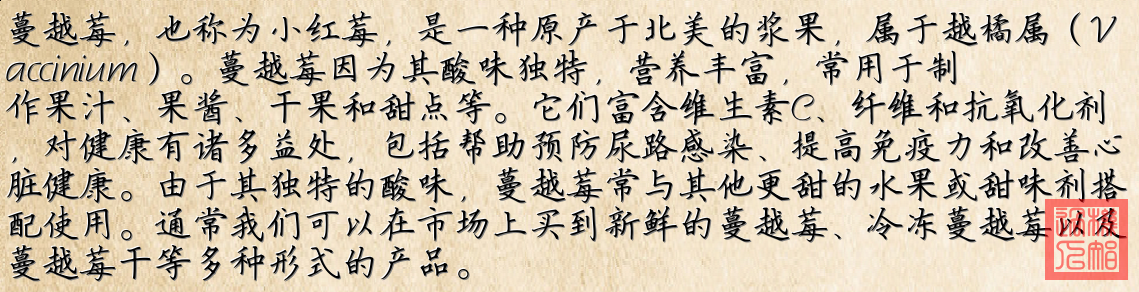 蔓越莓，也称为小红莓，是一种原产于北美的浆果，属于越橘属（V
accinium）。蔓越莓因为其酸味独特，营养丰富，常用于制
作果汁、果酱、干果和甜点等。它们富含维生素C、纤维和抗氧化剂
，对健康有诸多益处，包括帮助预防尿路感染、提高免疫力和改善心
脏健康。由于其独特的酸味，蔓越莓常与其他更甜的水果或甜味剂搭
配使用。通常我们可以在市场上买到新鲜的蔓越莓、冷冻蔓越莓以及
蔓越莓干等多种形式的产品。